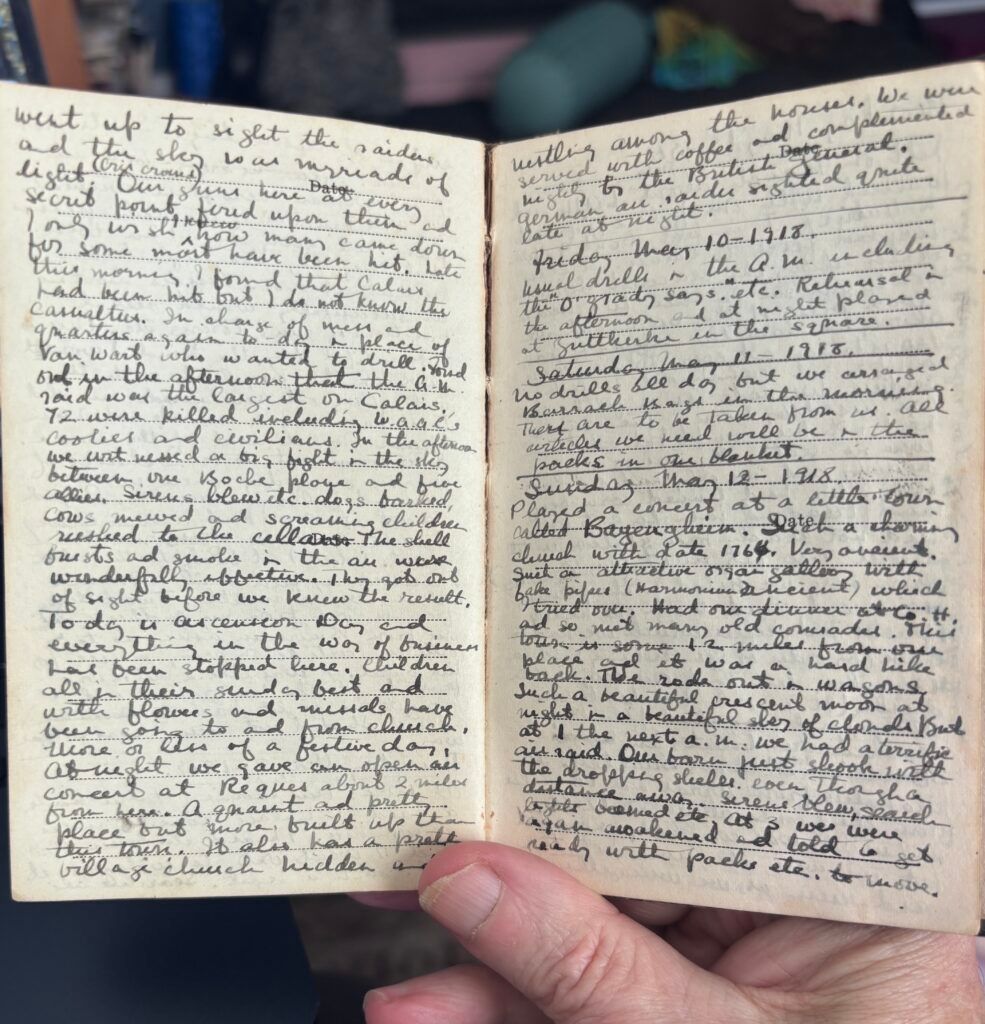 went up to sight the raiders
and the sky was myriads of
light (Criss cross)
Date
Our guns here at every
secret point fired upon them ad
I only wish I knew how many came down
for some must have been hit. Late
this morning I found that Calais
had been hit but I do not know the
casualties. In charge of mess ad
quarters again to day in place of
Van Wart who wanted to drill. Found
out in the afternoon that the A.M.
raid was the largest on Calais.
72 were killed including W.A.A.C's
coolies and civilians. In the afternoon
we witnessed a big fight in the sky
between one Boche plane and five
allies. Sirens blew etc. dogs barked,
cows mewed and screaming children
rushed to the cellars. The shell
bursts ad smoke in the air were
wonderfully effective. They got out
of sight before we knew the result.
To day is ascension Day and
everything in the way of business
has been stopped here. Children
all in their sunday best and
with flowers and missals have
been going to ad from church.
More or less of a festive day.
At night we gave an open air
concert at Reques about 2 miles
from here. A quaint ad pretty
place but more built up than
this town. It also has a pretty
village church hidden
nestling among the houses. We were
served with coffee and complemented
Date
nightly by the British General.
German air raider sighted quite
late at night.
Friday May 10 - 1918.
Usual drills in the A.M. including
the "O'grady says" etc. Rehearsal in
the afternoon ad at night played
at in the square.
Saturday May 11 - 1918.
No drills all day but we arranged
Barrack Bags in the morning.
These are to be taken from us. All
articles we need will be in the
packs in one blanket.
Sunday May 12 - 1918.
Played a concert at a little town
Date
called Bayengheim. Such a charming
church with date 1764. Very ancient.
Such an attractive organ gallery with
fake pipes (Harmonium ancient) which
I tried over. Had our dinner at Co. H.
ad so met many old comrades. This
town is some 12 miles from our
place and it was a hard hike
back. We rode out in wagons.
Such a beautiful crescent moon at
night in a beautiful sky of clouds But
at 1 the next a.m. we had a terrific
air raid. Our barn just shook with
the dropping shells even though a
distance away. Sirens blew, search
lights beamed etc. At 3 we were
again awakened ad told to get
ready with packs etc. to move.